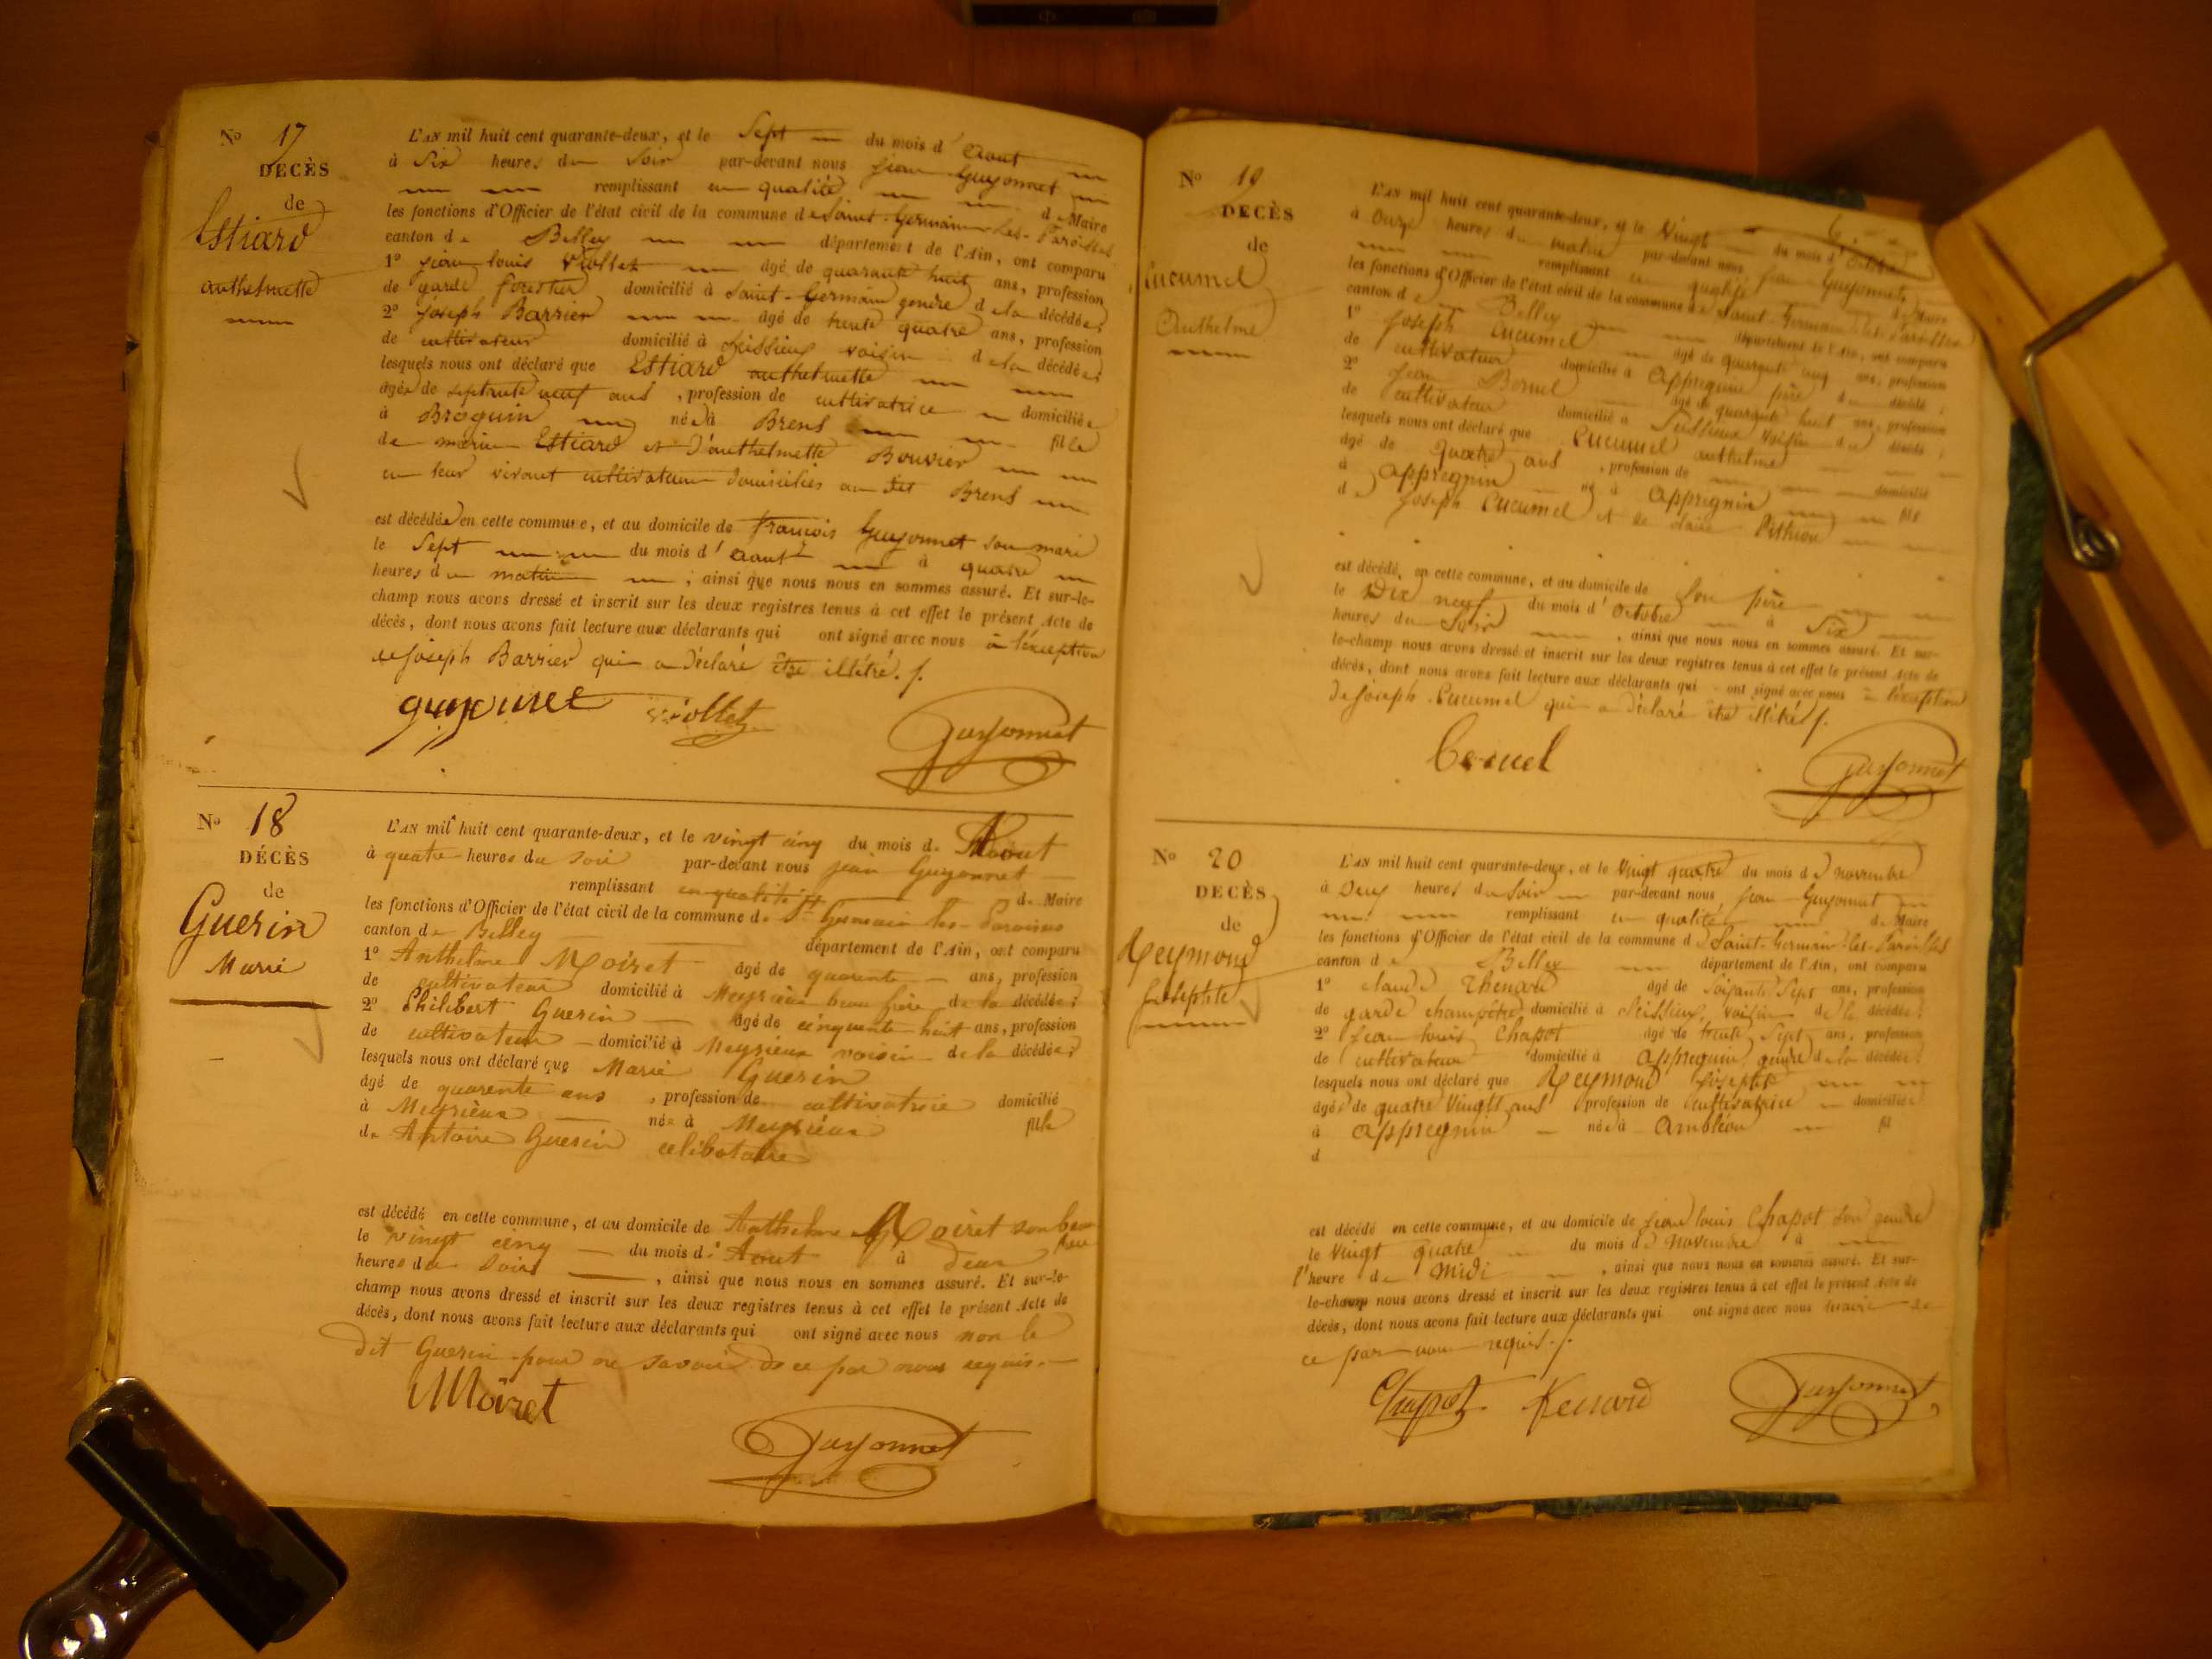 No 17
DÉCÈS
de
Estiard
anthelmette
L'AN mil huit cent quarante-deux, et le Sept du mois d'aout
à Six heures du Soir par-devant nous jean Guyonnet
remplissant en qualité de Maire
les fonctions d'Officier de l'état civil de la commune de Saint-Germain-les-Paroisses
canton de Belley département de l'Ain, ont comparu
1º jean louis Viollet âgé de quarante huit ans, profession
de garde forestier domicilié à Saint-Germain gendre de la décédée;
2º joseph Barrier âgé de trente quatre ans, profession
de cultivateur domicilié à Meissieux voisin de la décédée;
lesquels nous ont déclaré que Estiard anthelmette
âgée de septente neuf ans, profession de cultivatrice domiciliée
à Brognin née à Brens fille
de marin Estiard et d'anthelmette Bouvier
en leur vivant cultivateurs domiciliés au dit Brens
est décédée en cette commune, et au domicile de françois Guyonnet son mari
le Sept du mois d'aout à quatre
heures du matin ; ainsi que nous nous en sommes assuré. Et sur-le-
champ nous avons dressé et inscrit sur les deux registres tenus à cet effet le présent Acte de
décès, dont nous avons fait lecture aux déclarants qui ont signé avec nous à l'exception
de joseph Barrier qui a déclaré être illétré./.
guyonnet viollet Guyonnet
No 18
DÉCÈS
de
Guerin
Marie
L'AN mil huit cent quarante-deux, et le vingt cinq du mois d'Aout
à quatre heures du soir par-devant nous jean Guyonnet
remplissant en qualité de Maire
les fonctions d'Officier de l'état civil de la commune de St Germain les Paroisses
canton de Belley département de l'Ain, ont comparu
1º Anthelme Moiret âgé de quarente ans, profession
de cultivateur domicilié à Meyrieux beau frère de la décédée;
2º Philibert Guerin âgé de cinquante huit ans, profession
de cultivateur domicilié à Meyrieux voisin de la décédée;
lesquels nous ont déclaré que Marie Guerin
âgé de quarente ans, profession de cultivatrice domicilié
à Meyrieux née à Meyrieux fille
de Antoine Guerin celibataire
est décédé en cette commune, et au domicile de Anthelme Moiret son beau frere
le vingt cinq du mois d'Aout à deux
heures du Soir, ainsi que nous nous en sommes assuré. Et sur-le-
champ nous avons dressé et inscrit sur les deux registres tenus à cet effet le présent Acte de
décès, dont nous avons fait lecture aux déclarants qui ont signé avec nous non le
dit Guerin pour ne savoir de ce par nous requis.
Moiret
Guyonnet
No 19
DÉCÈS
de
Cucumel
Anthelme
L'AN mil huit cent quarante-deux, et le Vingt du mois d'Octobre
à Onze heures du matin par-devant nous jean Guyonnet
remplissant en qualité de Maire
les fonctions d'Officier de l'état civil de la commune de Saint-Germain-les-Paroisses
canton de Belley département de l'Ain, ont comparu
1º joseph Cucumel âgé de quarante cinq ans, profession
de cultivateur domicilié à Appregnin père du décédé;
2º jean Bornel âgé de quarante huit ans, profession
de cultivateur domicilié à voisin du décédé;
lesquels nous ont déclaré que Cucumel anthelme
âgé de quatre ans, profession de domicilié
à Appregnin né à Appregnin fils
de joseph Cucumel et de Pithion
est décédé, en cette commune, et au domicile de Son père
le Dix neuf du mois d'Octobre à Six
heures du Soir, ainsi que nous nous en sommes assuré. Et sur-
le-champ nous avons dressé et inscrit sur les deux registres tenus à cet effet le présent Acte de
décès, dont nous avons fait lecture aux déclarants qui ont signé avec nous à l'exception
de joseph Cucumel qui a déclaré être illétré/.
Guyonnet
No 20
DÉCÈS
de
Reymond
josephte
L'AN mil huit cent quarante-deux, et le Vingt quatre du mois de novembre
à Deux heures du Soir par-devant nous, jean Guyonnet
remplissant en qualité de Maire
les fonctions d'Officier de l'état civil de la commune de Saint-Germain-les-Paroisses
canton de Belley département de l'Ain, ont comparu
1º claude Thenard âgé de Soixante Sept ans, profession
de garde champêtre domicilié à Meissieux, voisin de la décédée;
2º jean louis Chapot âgé de trente Sept ans, profession
de cultivateur domicilié à Appregnin gendre de la décédée;
lesquels nous ont déclaré que Reymond josephte
âgée de quatre Vingts ans profession de cultivatrice domiciliée
à Appregnin née à Ambléon fil
d
est décédé en cette commune, et au domicile de jean louis Chapot Son gendre
le Vingt quatre du mois de novembre à
l'heure de Midi, ainsi que nous nous en sommes assuré. Et sur-
le-champ nous avons dressé et inscrit sur les deux registres tenus à cet effet le présent Acte de
décès, dont nous avons fait lecture aux déclarants qui ont signé avec nous maire de
ce par nous requis./.
Chapot Guyonnet